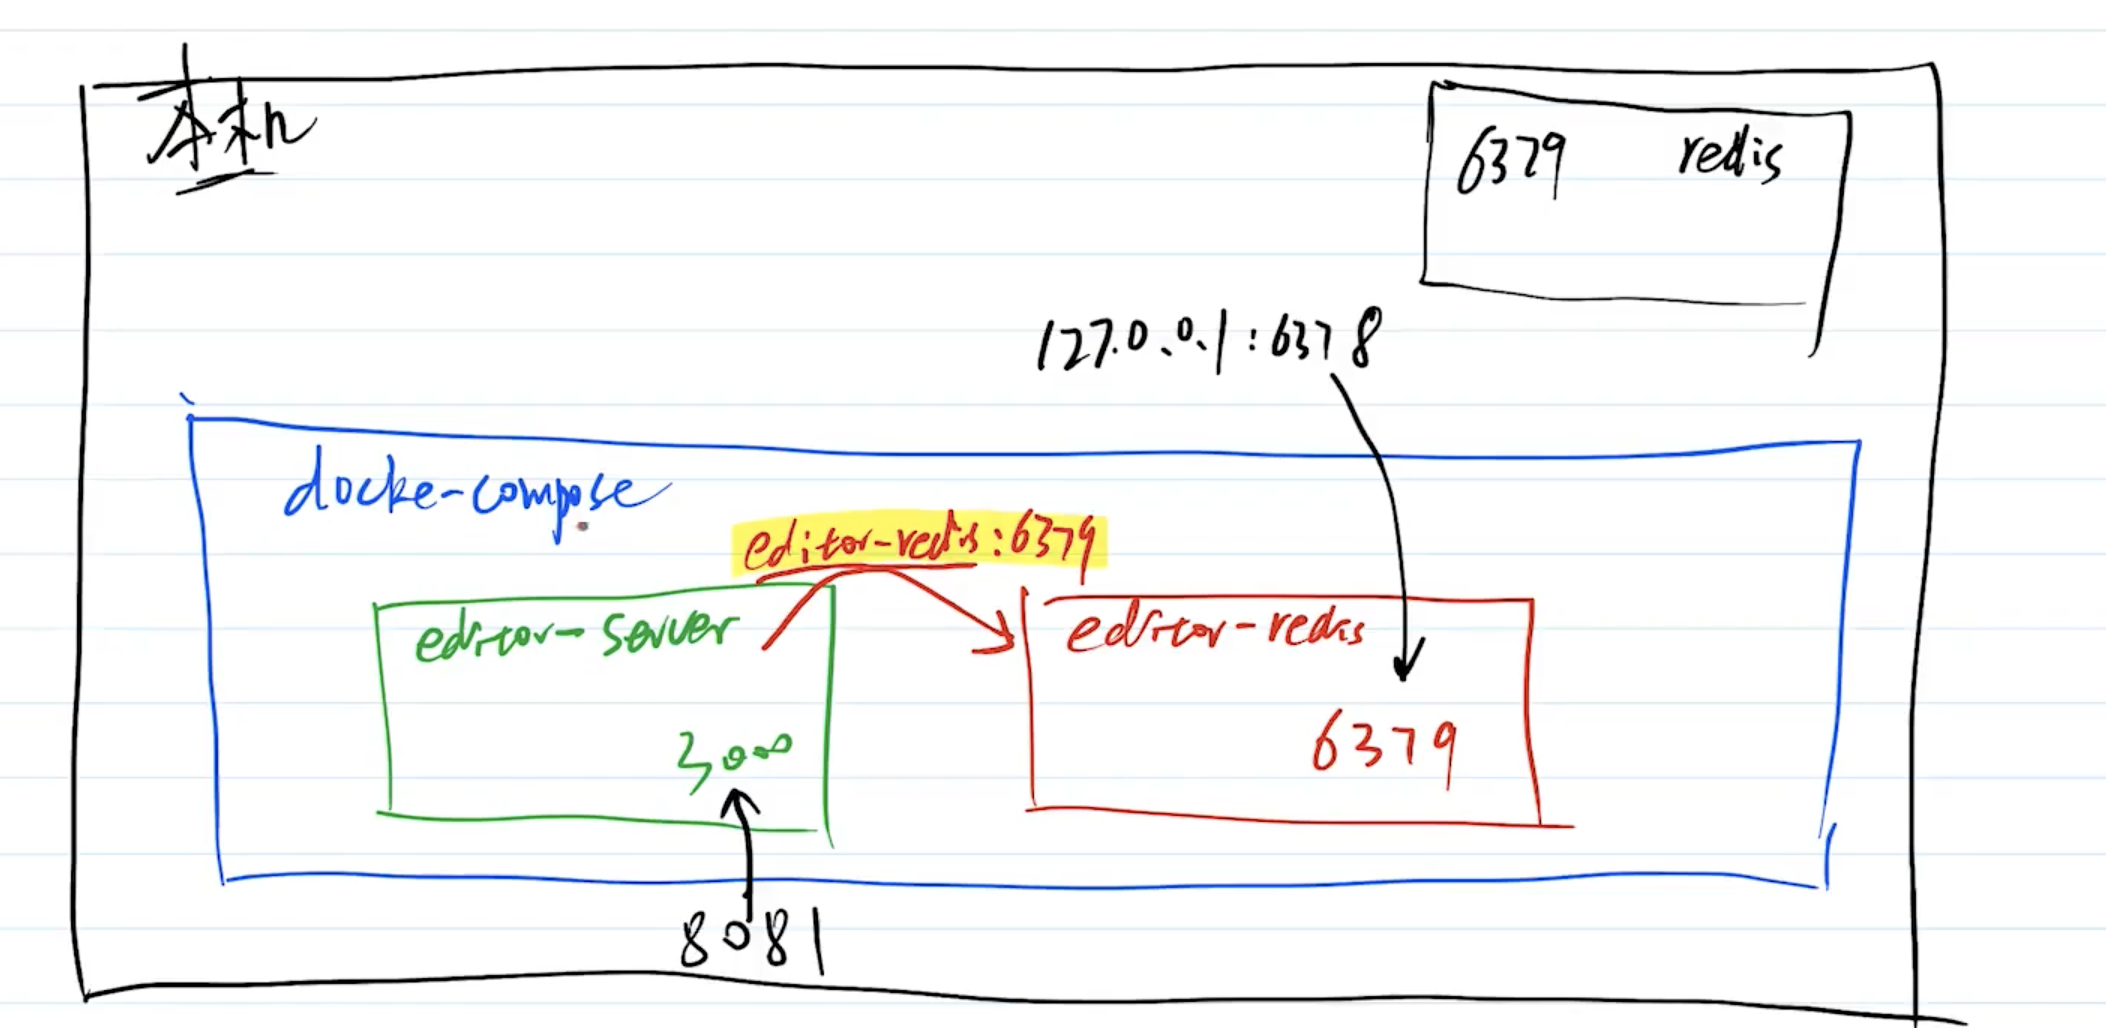 本机
6379 redis
127.0.0.1:6378
docke-compose
editor-redis:6379
editor-server
editor-redis
3000
6379
8081